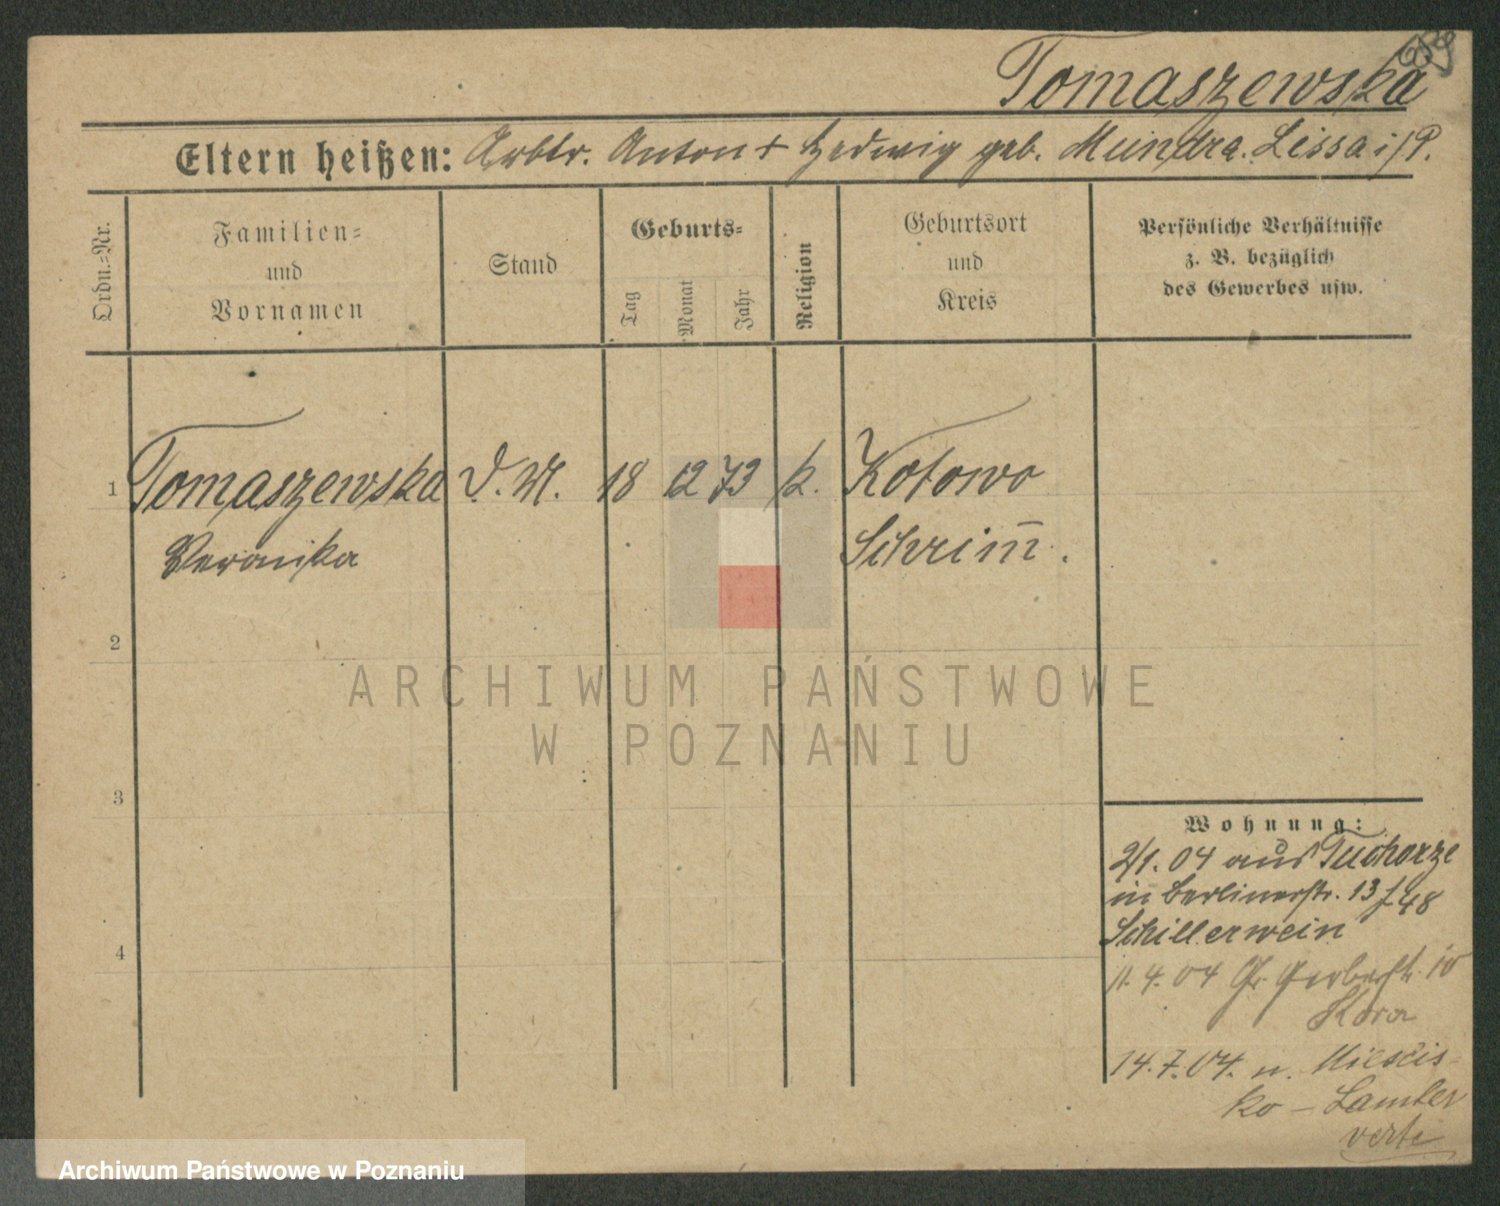 Tomaszewska
Eltern heißen: Arbtr. Anton + Hedwig geb. Mundra. Lissa i/P.
Ordn.-Nr.
Familien-
und
Vornamen
Stand
Geburts-
Tag
Monat
Jahr
Religion
Geburtsort
und
Kreis
Persönliche Verhältnisse
z. B. bezüglich
des Gewerbes usw.
1 Tomaszewska D. M. 18 12 73 k. Kotowo
Veronika Schrim̅.
2
ARCHIWUM PAŃSTWOWE
W POZNANIU
3
Wohnung:
2/1. 04 aus Tuchorze
in Berlinerstr. 13 f 48
Schillerwein
4
11. 4. 04 Gr Gerberstr. 10
14. 7. 04. n. Miescis-
ko –
verte
Archiwum Państwowe w Poznaniu